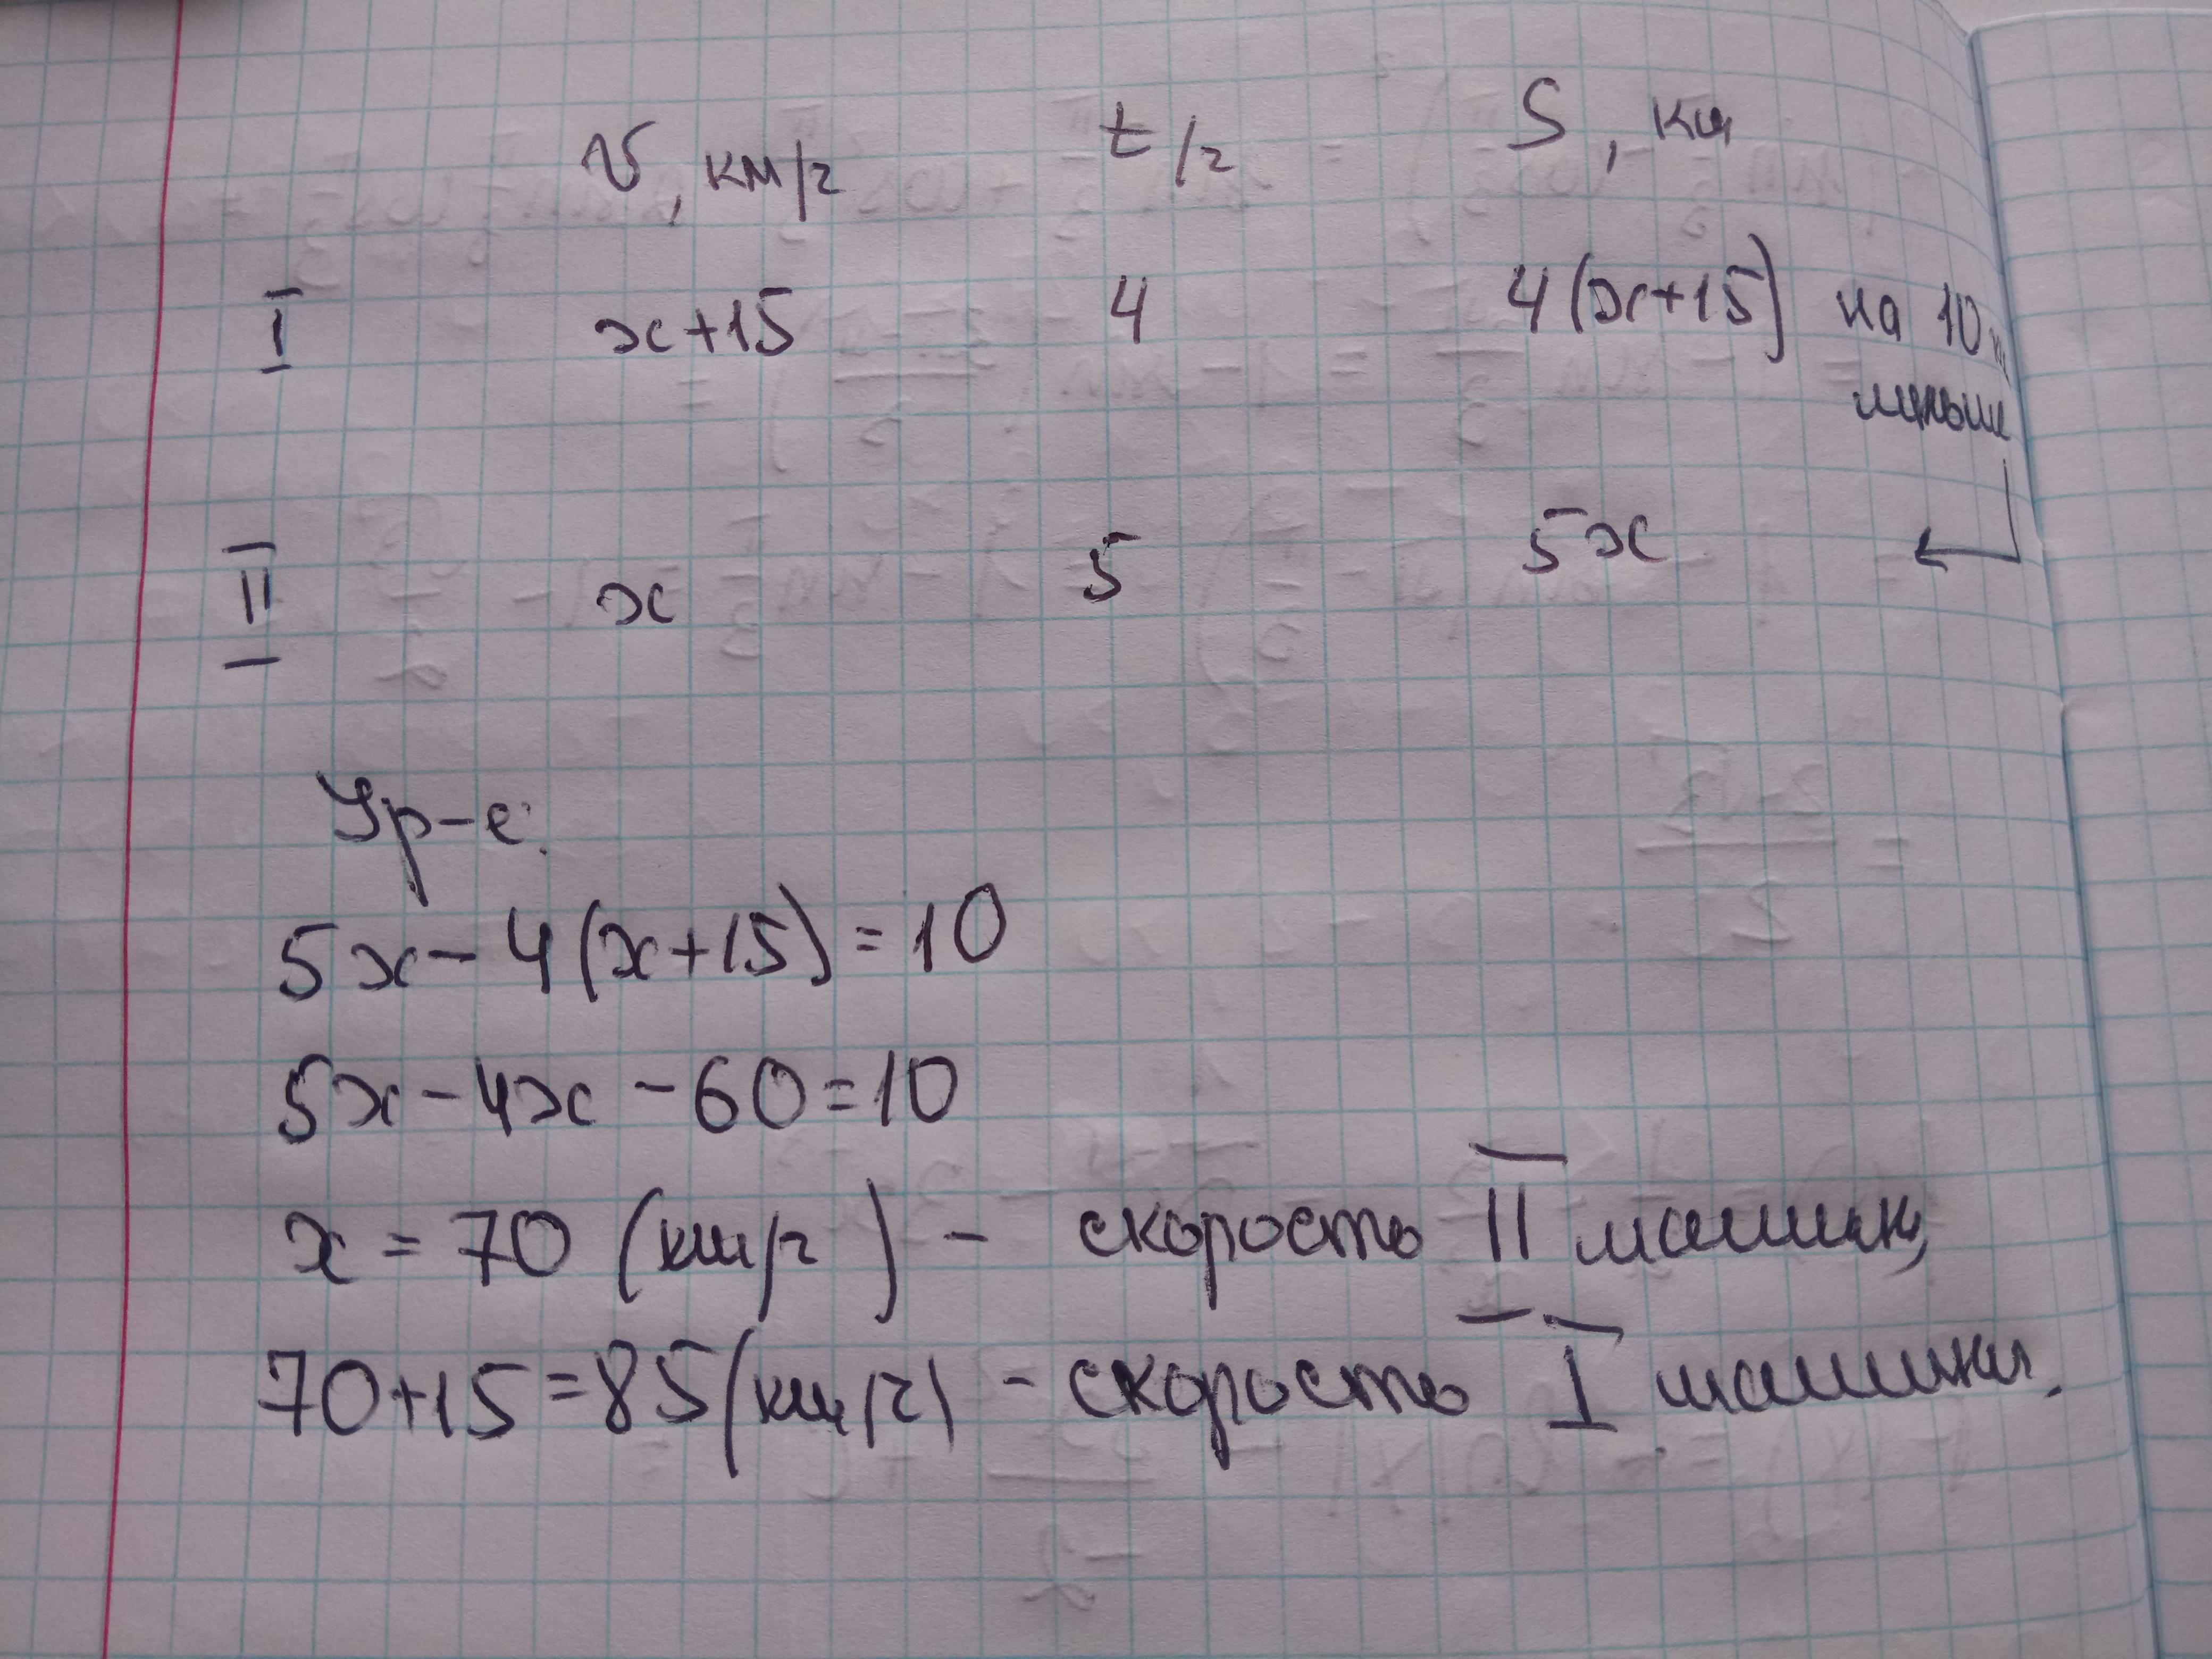 v, км/г t/г S, км
I x+15 4 4(x+15) на 10 км
меньше
II x 5 5x
Ур-е:
5x-4(x+15)=10
5x-4x-60=10
x=70 (км/г) - скорость II машины,
70+15=85(км/г) - скорость I машины.